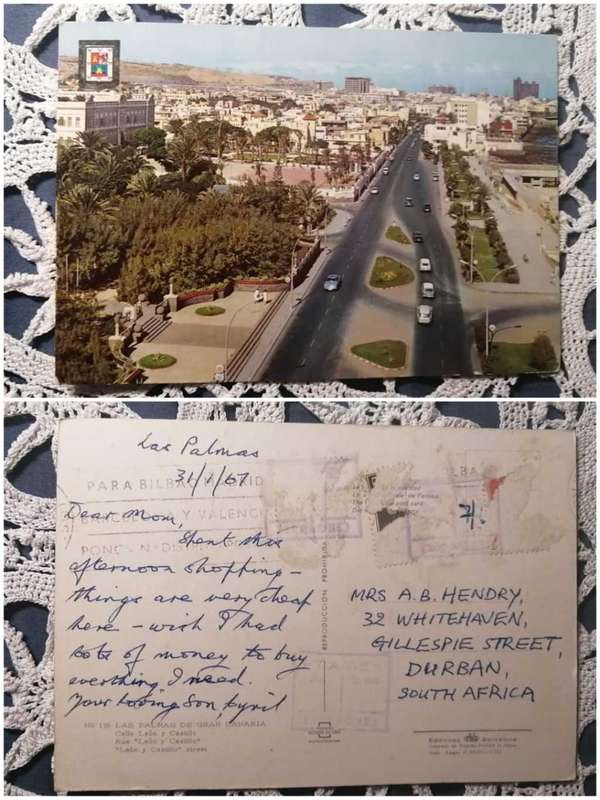 Las Palmas
31/1/67
PARA BILBAO MADRID
BARCELONA Y VALENCIA
Dear Mom,
Spent this
afternoon shopping -
things are very cheap
here - wish I had
lots of money to buy
everything I need.
Your loving Son, Cyril
MRS A.B. HENDRY,
32 WHITEHAVEN,
GILLESPIE STREET,
DURBAN,
SOUTH AFRICA
REPRODUCCION PROHIBIDA
LAS PALMAS DE GRAN CANARIA
Calle León y Castillo
Rue "León y Castillo"
"León y Castillo" street
Barcelona